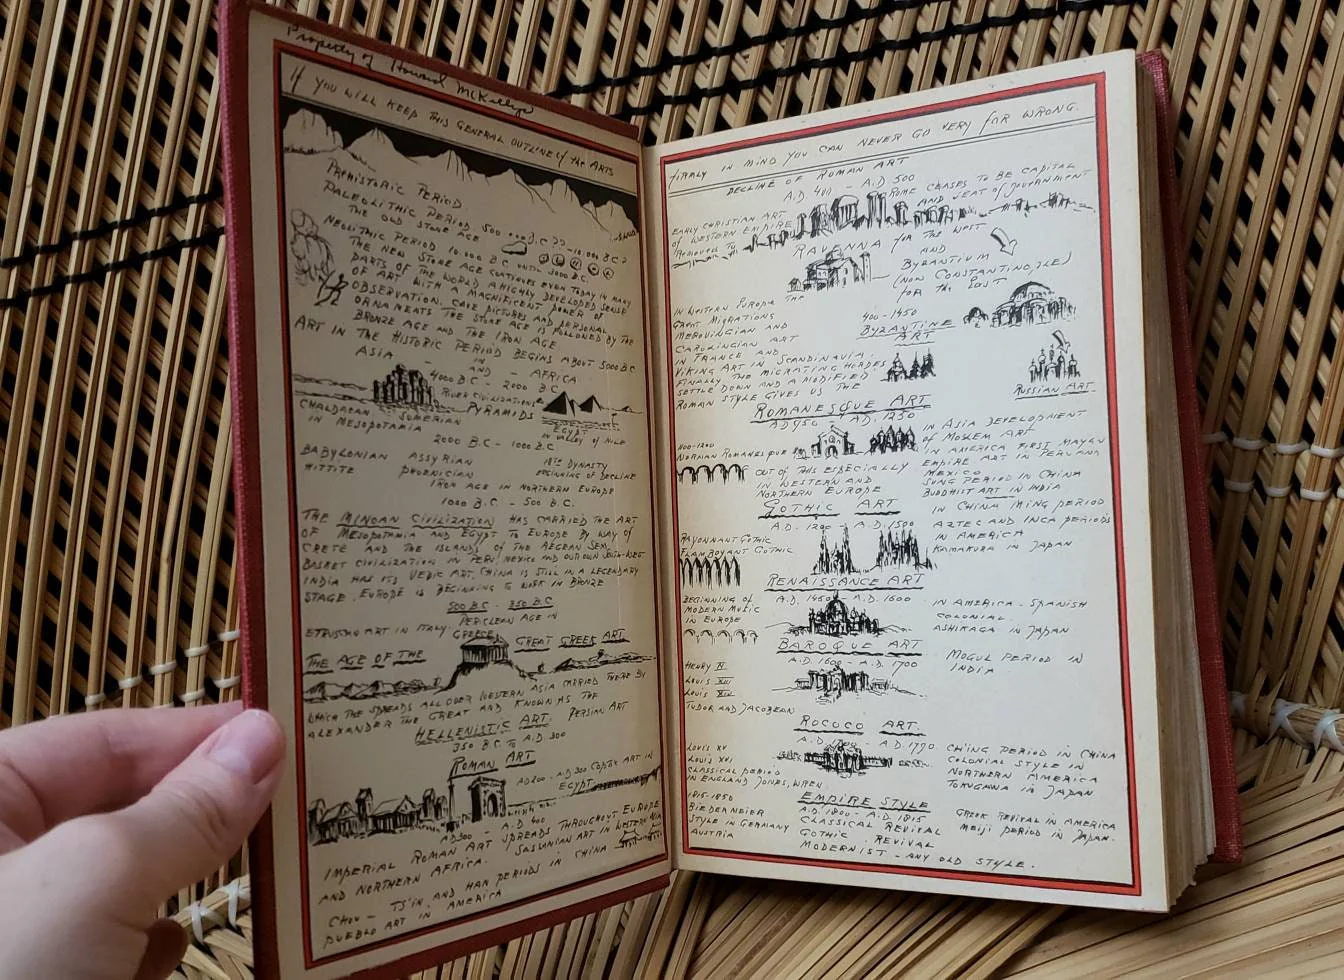 Property of Howard McKelly
If YOU WILL KEEP THIS GENERAL OUTLINE of the ARTS
PREHISTORIC PERIOD
PALEOLITHIC PERIOD. 500 000 B.C ?? - 10.000 B.C ?
THE OLD STONE AGE
NEOLITHIC PERIOD 10.000 BC UNTIL 5000 B.C.
THE NEW STONE AGE CONTINUES EVEN TODAY IN MANY
PARTS OF THE WORLD A HIGHLY DEVELOPED SENSE
OF ART WITH A MAGNIFICENT POWER OF
OBSERVATION. CAVE PICTURES AND PERSONAL
ORNAMENTS THE STONE AGE IS FOLLOWED BY THE
BRONZE AGE AND THE IRON AGE
ART IN THE HISTORIC PERIOD BEGINS ABOUT 5000 BC
IN
ASIA - AND - AFRICA
4000 B.C - 2000 B.C
RIVER CIVILIZATIONS
CHALDAEAN SUMERIAN PYRAMIDS EGYPT
IN MESOPOTAMIA IN VALLEY OF NILE
2000 B.C - 1000 B.C
BABYLONIAN ASSYRIAN 18TH DYNASTY
HITTITE PHOENICIAN BEGINNING OF DECLINE
IRON AGE IN NORTHERN EUROPE
1000 B.C. - 500 B.C.
THE MINOAN CIVILIZATION HAS CARRIED THE ART
OF MESOPOTAMIA AND EGYPT TO EUROPE BY WAY OF
CRETE AND THE ISLANDS OF THE AEGEAN SEA.
BASKET CIVILIZATION IN PERU MEXICO AND OUR OWN SOUTH-WEST
INDIA HAS ITS VEDIC ART. CHINA IS STILL IN A LEGENDARY
STAGE. EUROPE IS BEGINNING TO WORK IN BRONZE
500 B.C - 350 B.C
PERICLEAN AGE IN
ETRUSCAN ART IN ITALY. GREECE
THE AGE OF THE GREAT GREEK ART
WHICH THE SPREADS ALL OVER WESTERN ASIA CARRIED THERE BY
ALEXANDER THE GREAT AND KNOWN AS THE
HELLENISTIC ART. PERSIAN ART
350 B.C. TO A.D. 300
ROMAN ART
AD 200 - A.D 300 COPTIC ART IN
EGYPT
AD 300 - A.D 400
IMPERIAL ROMAN ART SPREADS THROUGHOUT EUROPE
AND NORTHERN AFRICA. SASSANIAN ART IN WESTERN ASIA
CHOU - TS'IN AND HAN PERIODS IN CHINA
PUEBLO ART IN AMERICA
FIRMLY IN MIND YOU CAN NEVER GO VERY FAR WRONG.
DECLINE OF ROMAN ART
A.D. 400 - A.D 500
ROME CEASES TO BE CAPITAL
AND SEAT OF GOVERNMENT
EARLY CHRISTIAN ART
OF WESTERN EUROPE
REMOVED TO
RAVENNA for THE WEST
AND
BYZANTIUM
(NOW CONSTANTINOPLE)
for THE EAST
IN WESTERN EUROPE THE
GREAT MIGRATIONS
MEROVINGIAN AND
CAROLINGIAN ART
IN FRANCE AND
VIKING ART IN SCANDINAVIA.
FINALLY THE MIGRATING HORDES
SETTLE DOWN AND A MODIFIED
ROMAN STYLE GIVES US THE
400 - 1450
BYZANTINE
ART
RUSSIAN ART
ROMANESQUE ART
AD 950 - A.D. 1250
1100-1200
NORMAN ROMANESQUE
OUT OF THIS ESPECIALLY
IN WESTERN AND
NORTHERN EUROPE
IN ASIA DEVELOPMENT
OF MOSLEM ART
IN AMERICA FIRST MAYAN
EMPIRE ART IN PERU AND
MEXICO
SUNG PERIOD IN CHINA
BUDDHIST ART IN INDIA
GOTHIC ART
A.D. 1200 - A.D. 1500
RAYONNANT GOTHIC
FLAMBOYANT GOTHIC
IN CHINA MING PERIOD
AZTEC AND INCA PERIODS
IN AMERICA
KAMAKURA IN JAPAN
RENAISSANCE ART
A.D. 1450 - A.D. 1600
BEGINNING OF
MODERN MUSIC
IN EUROPE
IN AMERICA - SPANISH
COLONIAL.
ASHIKAGA IN JAPAN
BAROQUE ART
A.D. 1600 - A.D. 1700
HENRY IV
LOUIS XIII
LOUIS XIV
TUDOR AND JACOBEAN
MOGUL PERIOD IN
INDIA
ROCOCO ART
A.D. 1700 - A.D. 1790
LOUIS XV
LOUIS XVI
CLASSICAL PERIOD
IN ENGLAND JONES, WREN
CH'ING PERIOD IN CHINA
COLONIAL STYLE IN
NORTHERN AMERICA
TOKUGAWA IN JAPAN
EMPIRE STYLE
A.D. 1800 - A.D. 1815
CLASSICAL REVIVAL
GOTHIC REVIVAL
MODERNIST - ANY OLD STYLE.
1815-1850
BIEDERMEIER
STYLE IN GERMANY
AUSTRIA
GREEK REVIVAL IN AMERICA
MEIJI PERIOD IN JAPAN.